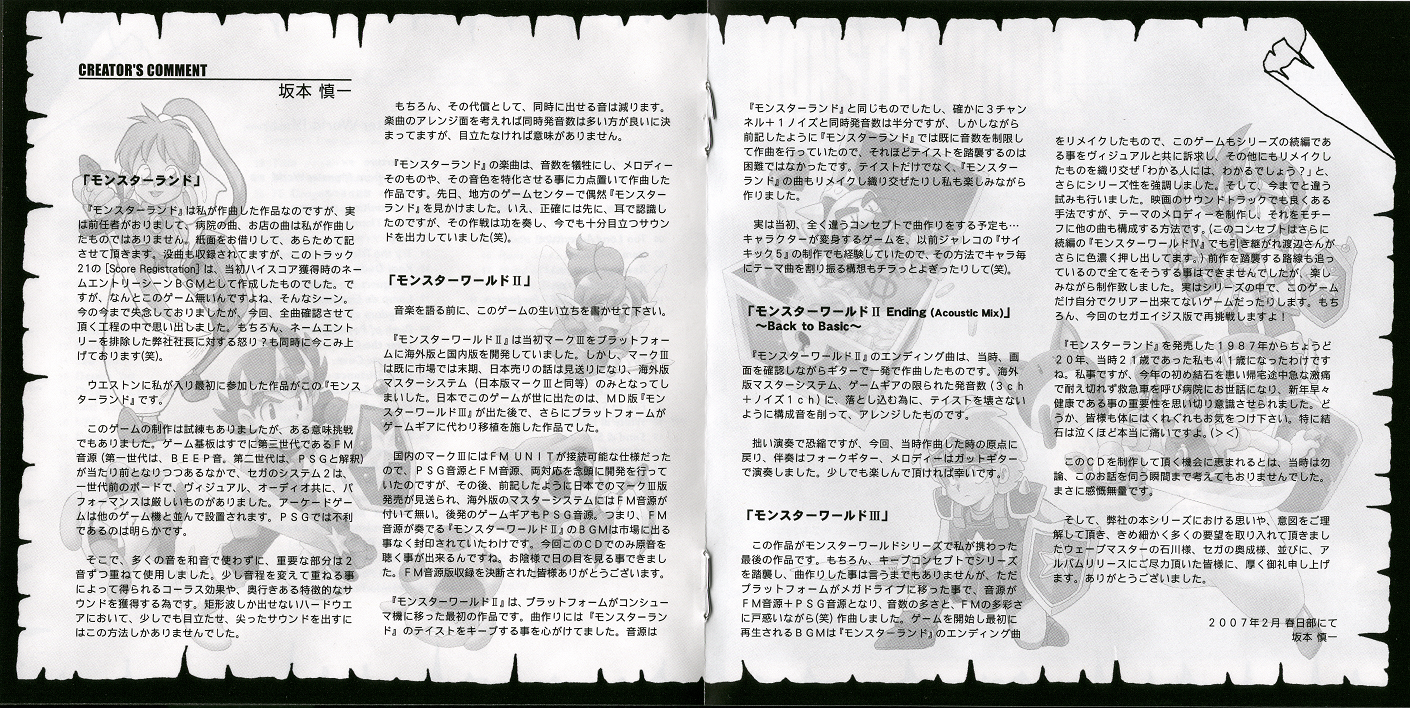 CREATOR'S COMMENT
坂本 慎一
「モンスターランド」
『モンスターランド』は私が作曲した作品なのですが、実
は前任者がおりまして、病院の曲、お店の曲は私が作曲し
たものではありません。紙面をお借りして、あらためて記
させて頂きます。没曲も収録されてますが、このトラック
21の [Score Registration] は、当初ハイスコア獲得時のネー
ムエントリーシーンＢＧＭとして作成したものでした。で
すが、なんとこのゲーム無いんですよね、そんなシーン。
今の今まで失念しておりましたが、今回、全曲確認させて
頂く工程の中で思い出しました。もちろん、ネームエント
リーを排除した弊社社長に対する怒り？も同時に今こみ上
げております(笑)。
ウエストンに私が入り最初に参加した作品がこの『モンス
ターランド』です。
このゲームの制作は試練もありましたが、ある意味挑戦
でもありました。ゲーム基板はすでに第三世代であるＦＭ
音源 (第一世代は、ＢＥＥＰ音。第二世代は、ＰＳＧと解釈)
が当たり前となりつつあるなかで、セガのシステム２は、
一世代前のボードで、ヴィジュアル、オーディオ共に、パ
フォーマンスは厳しいものがありました。アーケードゲー
ムは他のゲーム機と並んで設置されます。ＰＳＧでは不利
であるのは明らかです。
そこで、多くの音を和音で使わずに、重要な部分は２
音ずつ重ねて使用しました。少し音程を変えて重ねる事
によって得られるコーラス効果や、奥行きある特徴的なサ
ウンドを獲得する為です。矩形波しか出せないハードウエ
アにおいて、少しでも目立たせ、尖ったサウンドを出すに
はこの方法しかありませんでした。
もちろん、その代償として、同時に出せる音は減ります。
楽曲のアレンジ面を考えれば同時発音数は多い方が良いに決
まってますが、目立たなければ意味がありません。
『モンスターランド』の楽曲は、音数を犠牲にし、メロディー
そのものや、その音色を特化させる事に力点置いて作曲した
作品です。先日、地方のゲームセンターで偶然『モンスター
ランド』を見かけました。いえ、正確には先に、耳で認識し
たのですが、その作戦は功を奏し、今でも十分目立つサウン
ドを出力していました(笑)。
「モンスターワールドⅡ」
音楽を語る前に、このゲームの生い立ちを書かせて下さい。
『モンスターワールドⅡ』は当初マークⅢをプラットフォー
ムに海外版と国内版を開発していました。しかし、マークⅢ
は既に市場では末期、日本売りの話は見送りになり、海外版
マスターシステム（日本版マークⅢと同等）のみとなってし
まいした。日本でこのゲームが世に出たのは、ＭＤ版『モン
スターワールドⅢ』が出た後で、さらにプラットフォームが
ゲームギアに代わり移植を施した作品でした。
国内のマークⅢにはＦＭ ＵＮＩＴが接続可能な仕様だった
ので、ＰＳＧ音源とＦＭ音源、両対応を念頭に開発を行って
いたのですが、その後、前記したように日本でのマークⅢ版
発売が見送られ、海外版のマスターシステムにはＦＭ音源が
付いて無い。後発のゲームギアもＰＳＧ音源。つまり、ＦＭ
音源が奏でる『モンスターワールドⅡ』のＢＧＭは市場に出る
事なく封印されていたわけです。今回このＣＤでのみ原音を
聴く事が出来るんですね。お陰様で日の目を見る事できまし
た。ＦＭ音源版収録を決断された皆様ありがとうございます。
『モンスターワールドⅡ』は、プラットフォームがコンシュー
マ機に移った最初の作品です。曲作りには『モンスターラン
ド』のテイストをキープする事を心がけてました。音源は
『モンスターランド』と同じものでしたし、確かに３チャン
ネル＋１ノイズと同時発音数は半分ですが、しかしながら
前記したように『モンスターランド』では既に音数を制限し
て作曲を行っていたので、それほどテイストを踏襲するのは
困難ではなかったです。テイストだけでなく、『モンスター
ランド』の曲もリメイクし織り交ぜたりし私も楽しみながら
作りました。
実は当初、全く違うコンセプトで曲作りをする予定も…
キャラクターが変身するゲームを、以前ジャレコの『サイ
キック５』の制作でも経験していたので、その方法でキャラ毎
にテーマ曲を割り振る構想もチラっとよぎったりして(笑)。
「モンスターワールドⅡ Ending (Acoustic Mix)」
～Back to Basic～
『モンスターワールドⅡ』のエンディング曲は、当時、画
面を確認しながらギターで一発で作曲したものです。海外
版マスターシステム、ゲームギアの限られた発音数（３ｃｈ
＋ノイズ１ｃｈ）に、落とし込む為に、テイストを壊さない
ように構成音を削って、アレンジしたものです。
拙い演奏で恐縮ですが、今回、当時作曲した時の原点に
戻り、伴奏はフォークギター、メロディーはガットギター
で演奏しました。少しでも楽しんで頂ければ幸いです。
「モンスターワールドⅢ」
この作品がモンスターワールドシリーズで私が携わった
最後の作品です。もちろん、キープコンセプトでシリーズ
を踏襲し、曲作りした事は言うまでもありませんが、ただ
プラットフォームがメガドライブに移った事で、音源が
ＦＭ音源＋ＰＳＧ音源となり、音数の多さと、ＦＭの多彩さ
に戸惑いながら(笑) 作曲しました。ゲームを開始し最初に
再生されるＢＧＭは『モンスターランド』のエンディング曲
をリメイクしたもので、このゲームもシリーズの続編であ
る事をヴィジュアルと共に訴求し、その他にもリメイクし
たものを織り交ぜ「わかる人には、わかるでしょう？」と、
さらにシリーズ性を強調しました。そして、今までと違う
試みも行いました。映画のサウンドトラックでも良くある
手法ですが、テーマのメロディーを制作し、それをモチー
フに他の曲も構成する方法です。(このコンセプトはさらに
続編の『モンスターワールドⅣ』でも引き継がれ渡辺さんが
さらに色濃く押し出してます。) 前作を踏襲する路線も追っ
ているので全てをそうする事はできませんでしたが、楽し
みながら制作致しました。実はシリーズの中で、このゲーム
だけ自分でクリアー出来てないゲームだったりします。もち
ろん、今回のセガエイジス版で再挑戦しますよ！
『モンスターランド』を発売した１９８７年からちょうど
２０年、当時２１歳であった私も４１歳になったわけです
ね。私事ですが、今年の初め結石を患い帰宅途中急な激痛
で耐え切れず救急車を呼び病院にお世話になり、新年早々
健康である事の重要性を思い切り意識させられました。ど
うか、皆様も体にはくれぐれもお気をつけ下さい。特に結
石は泣くほど本当に痛いですよ。(＞＜)
このＣＤを制作して頂く機会に恵まれるとは、当時は勿
論、このお話を伺う瞬間まで考えてもおりませんでした。
まさに感慨無量です。
そして、弊社の本シリーズにおける思いや、意図をご理
解して頂き、きめ細かく多くの要望を取り入れて頂きまし
たウェーブマスターの石川様、セガの奥成様、並びに、ア
ルバムリリースにご尽力頂いた皆様に、厚く御礼申し上げ
ます。ありがとうございました。
２００７年２月 春日部にて
坂本 慎一